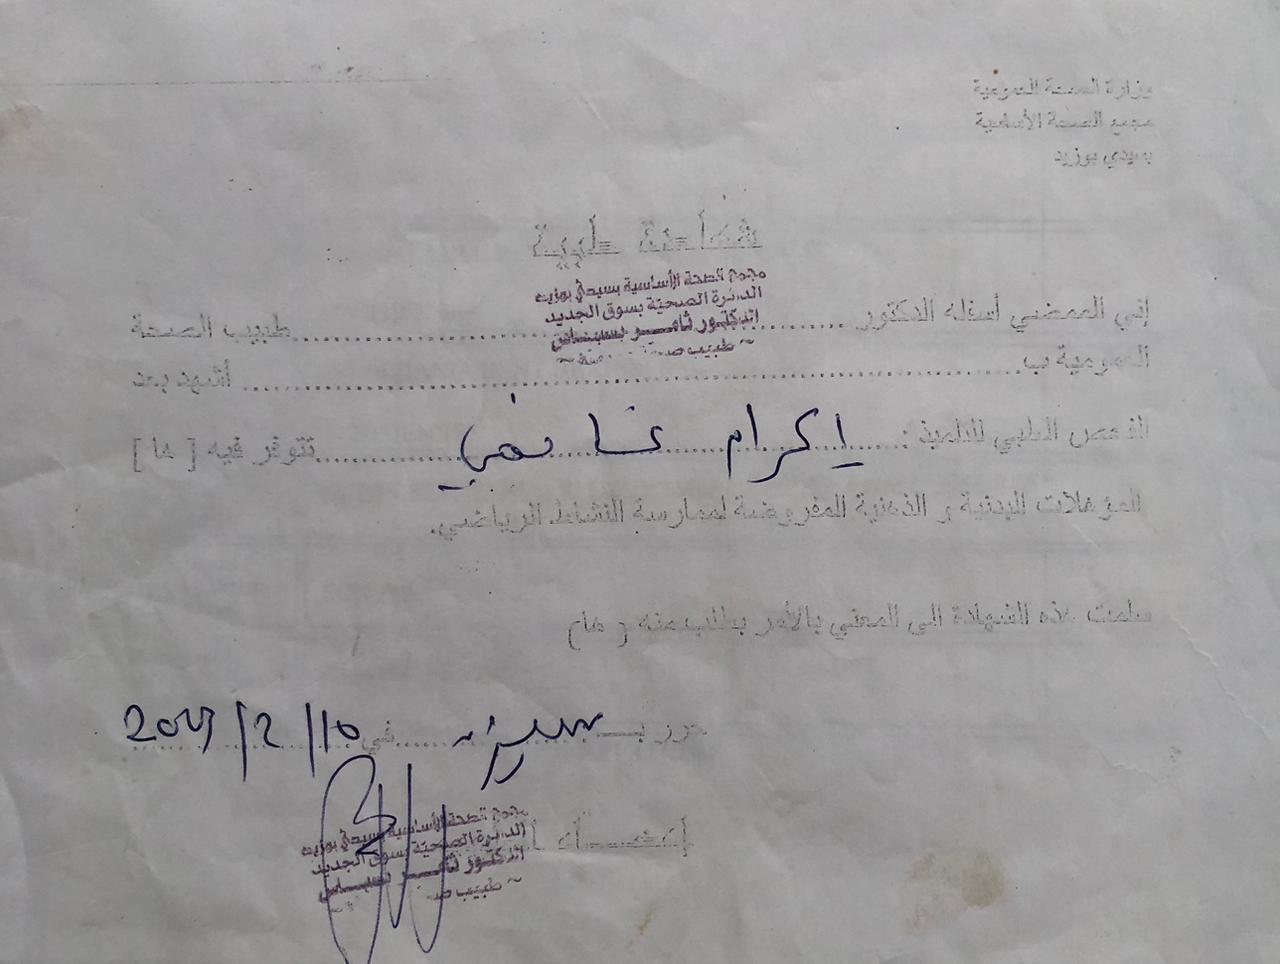 وزارة الصحة العمومية
مجمع الصحة الأساسية
بسيدي بوزيد
شهادة طبية
مجمع الصحة الأساسية بسيدي بوزيد
الدائرة الصحية بسوق الجديد
الدكتور ثامر
طبيب
إني الممضي أسفله الدكتور ........ طبيب الصحة
العمومية ب ........ أشهد بعد
الفحص الطبي للتلميذ : إكرام تتوفر فيه [ ها ]
المؤهلات البدنية و الذهنية المفروضة لممارسة النشاط الرياضي.
سلمت هذه الشهادة الى المعني بالأمر بطلب منه [ ها)
حرر بـ في 10/2/
إمضاء
مجمع الصحة الأساسية بسيدي بوزيد
الدائرة الصحية بسوق الجديد
الدكتور ثامر
طبيب